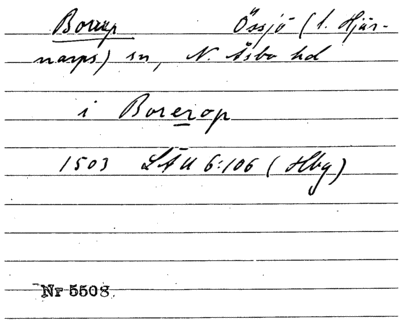 Borrup Össjö (1. Hjär-
narps) sn, N. Åsbo hd
i Borerop
1503 LÄU 6:106 (Hbg)
Nr 5508.